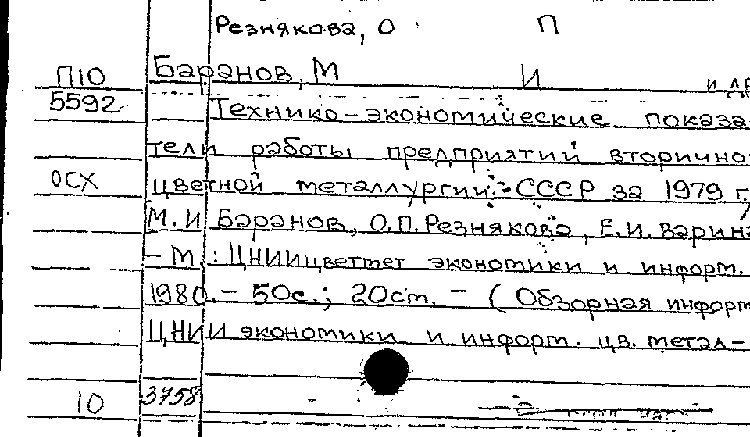 Резнякова, О П
П10 Баранов, М И и др
5592 Технико-экономические показа
тели работы предприятий вторично
ОСХ цветной металлургии СССР за 1979 г.
М.И Баранов, О.П. Резнякова, Е.И. Варина
- М.: ЦНИИцветмет экономики и информ.
1980. - 50с.; 20см. - ( Обзорная информ
ЦНИИ экономики и информ. цв. метал-
10 3758